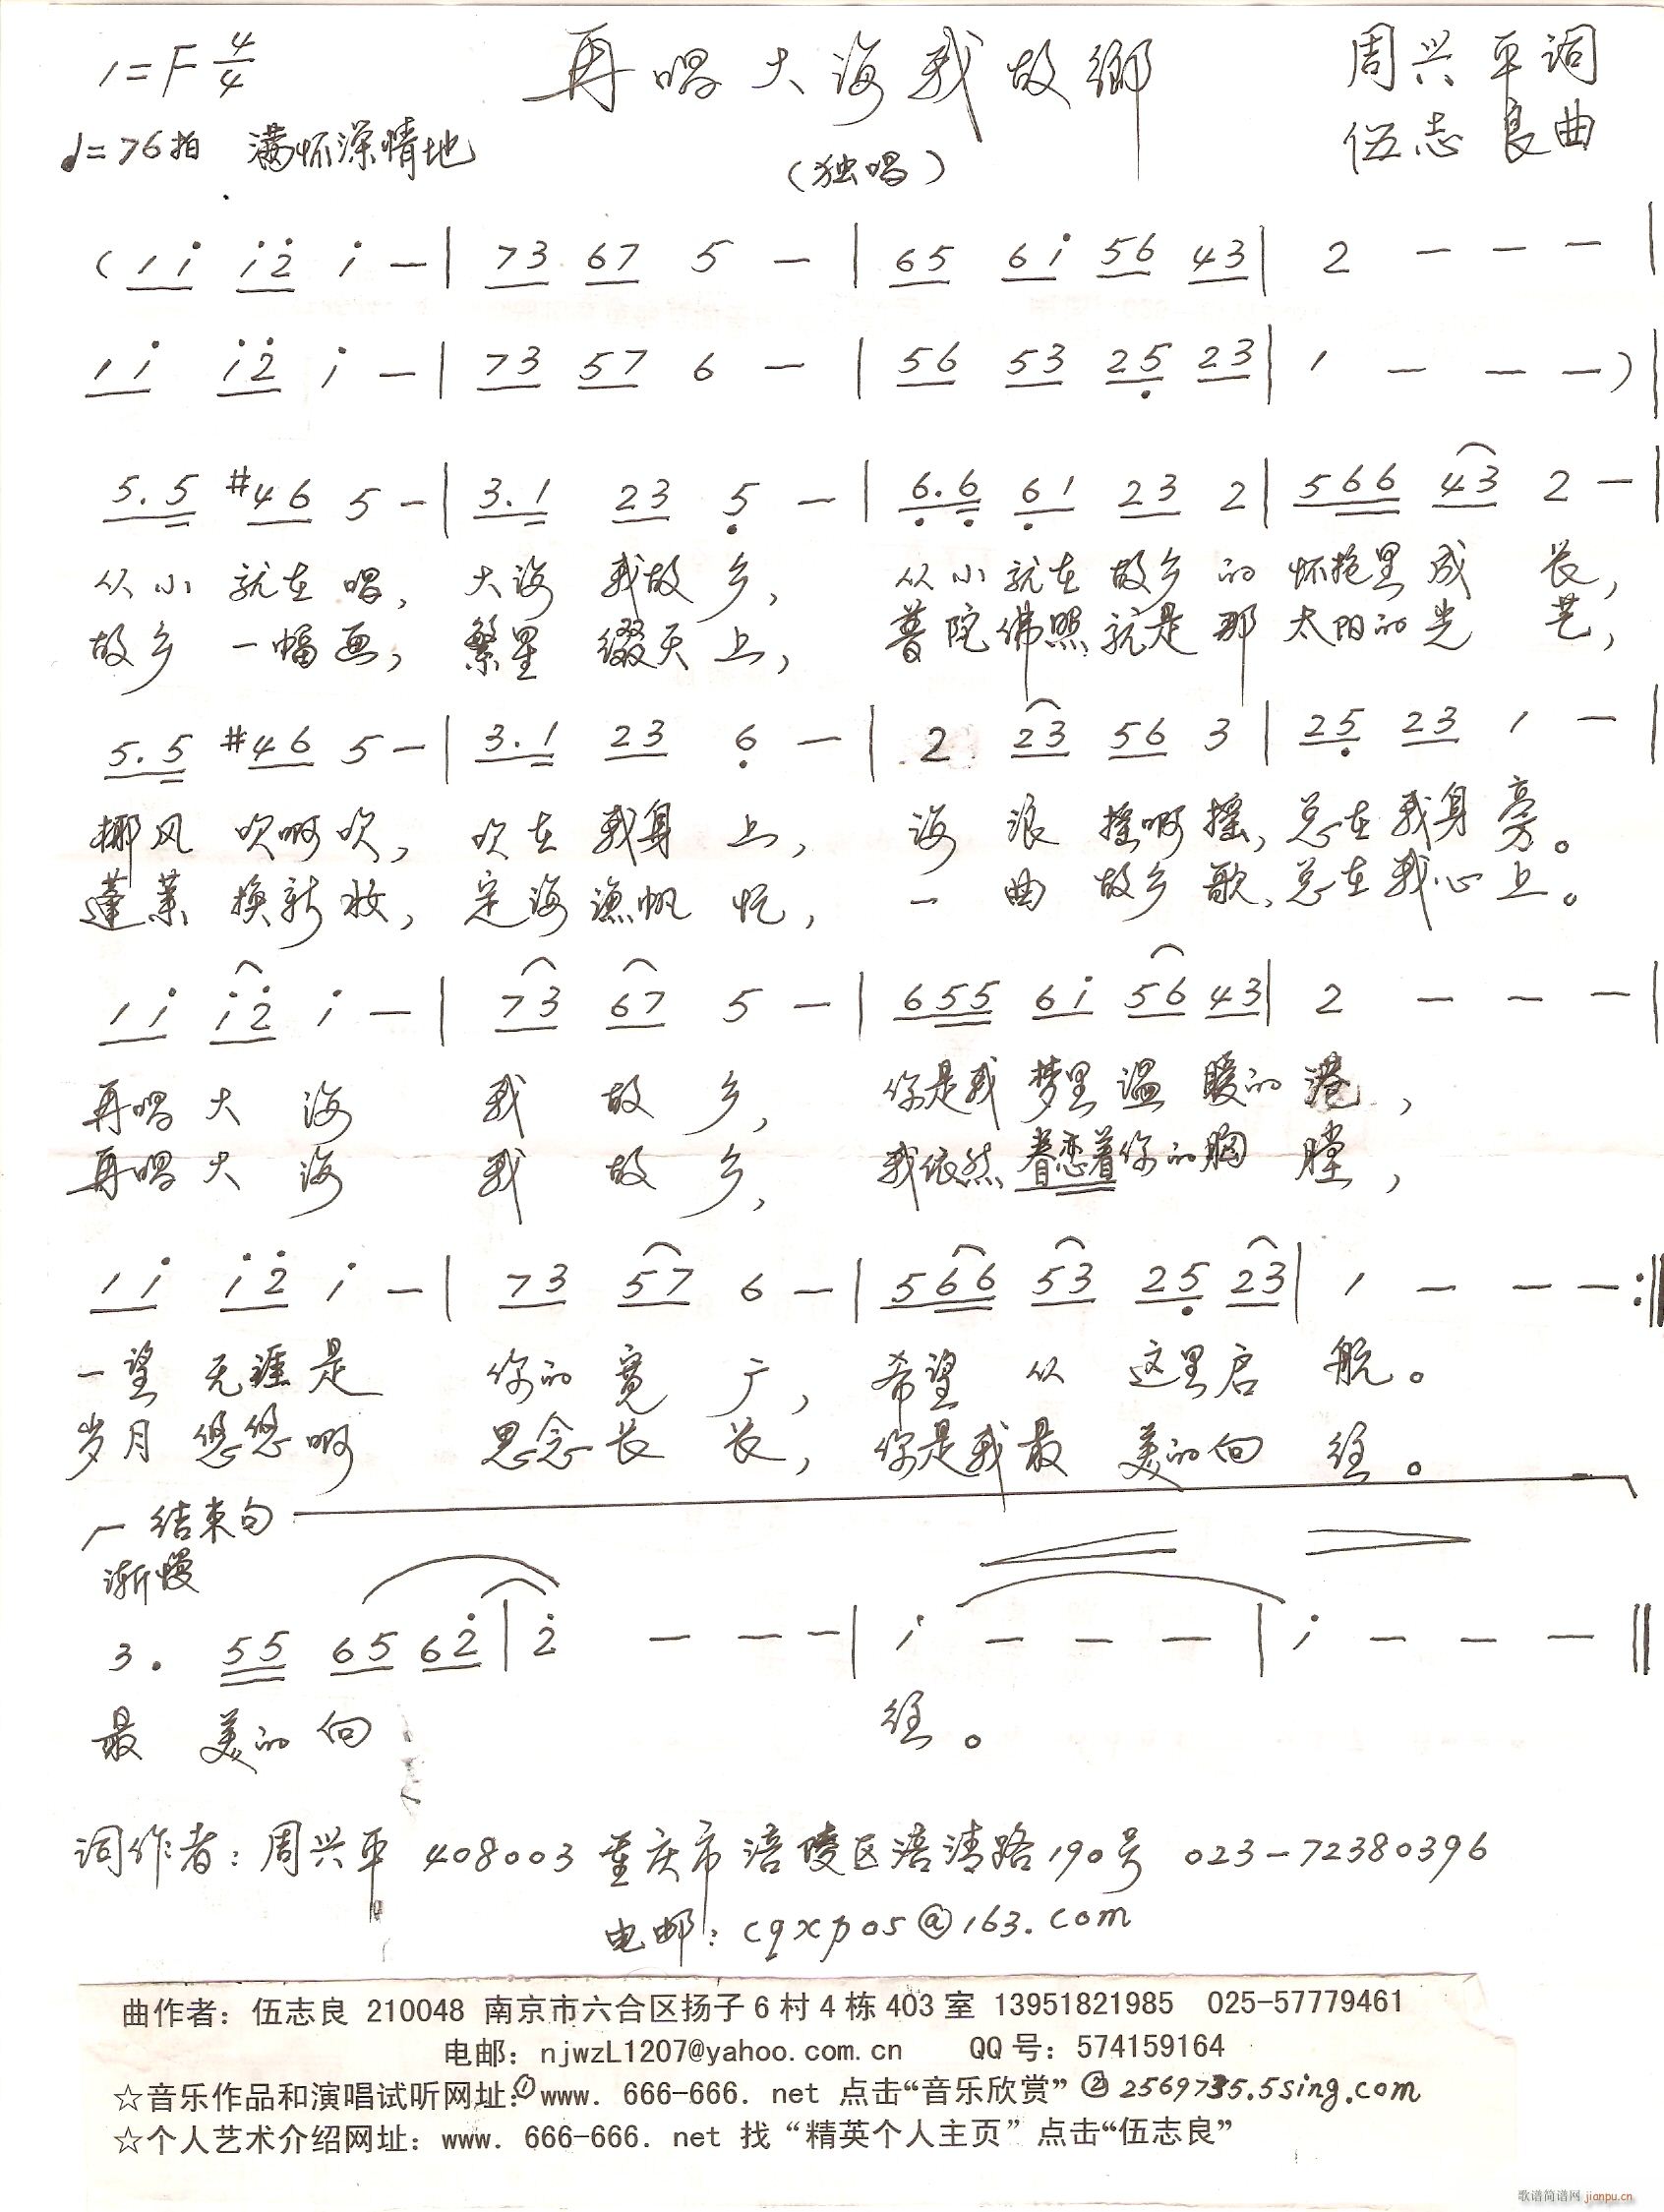 1=F 4/4 再唱大海我故鄉 周兴平词
♩=76拍 满怀深情地 (独唱) 伍志良曲
(1i̇ i̇2̇ i̇ — | 73 67 5 — | 65 6i̇ 56 43 | 2 — — — |
1i̇ i̇2̇ i̇ — | 73 57 6 — | 56 53 25̣ 23 | 1 — — —) |
5.5 #46 5 — | 3.1 23 5̣ — | 6̣.6̣ 6̣1 23 2 | 566 43 2 — |
从小 就在唱, 大海 我故乡, 从小就在故乡的怀抱里成长,
故乡 一幅画, 繁星 缀天上, 普陀佛照就是那太阳的光芒,
5.5 #46 5 — | 3.1 23 6̣ — | 2 23 56 3 | 25̣ 23 1 — |
椰风 吹啊吹, 吹在我身上, 海浪摇啊摇,总在我身旁。
蓬莱换新妆, 定海渔帆忙, 一曲故乡歌,总在我心上。
1i̇ i̇2̇ i̇ — | 73 67 5 — | 655 6i̇ 56 43 | 2 — — — |
再唱大海 我故乡, 你是我梦里温暖的港,
再唱大海 我故乡, 我依然眷恋着你的胸膛,
1i̇ i̇2̇ i̇ — | 73 57 6 — | 566 53 25̣ 23 | 1 — — — :‖
一望无涯是 你的宽广, 希望从这里启航。
岁月悠悠啊 思念长长, 你是我最美的向往。
结束句
渐慢
3. 55 65 62̇ | 2̇ — — — | i̇ — — — | i̇ — — — ‖
最美的向 往。
词作者:周兴平 408003 重庆市涪陵区涪清路190号 023-72380396
电邮:cqxp05@163.com
曲作者:伍志良 210048 南京市六合区扬子6村4栋403室 13951821985 025-57779461
电邮:njwzL1207@yahoo.com.cn QQ号:574159164
☆音乐作品和演唱试听网址:①www. 666-666. net 点击“音乐欣赏” ②2569735.5sing.com
☆个人艺术介绍网址:www. 666-666. net 找“精英个人主页”点击“伍志良”
歌谱简谱网 jianpu.cn